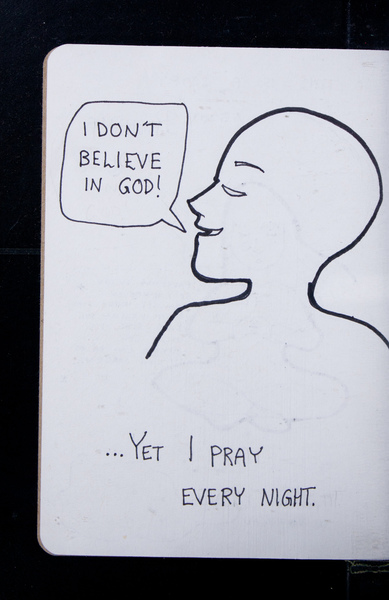 I DON'T
BELIEVE
IN GOD!
...YET I PRAY
EVERY NIGHT.